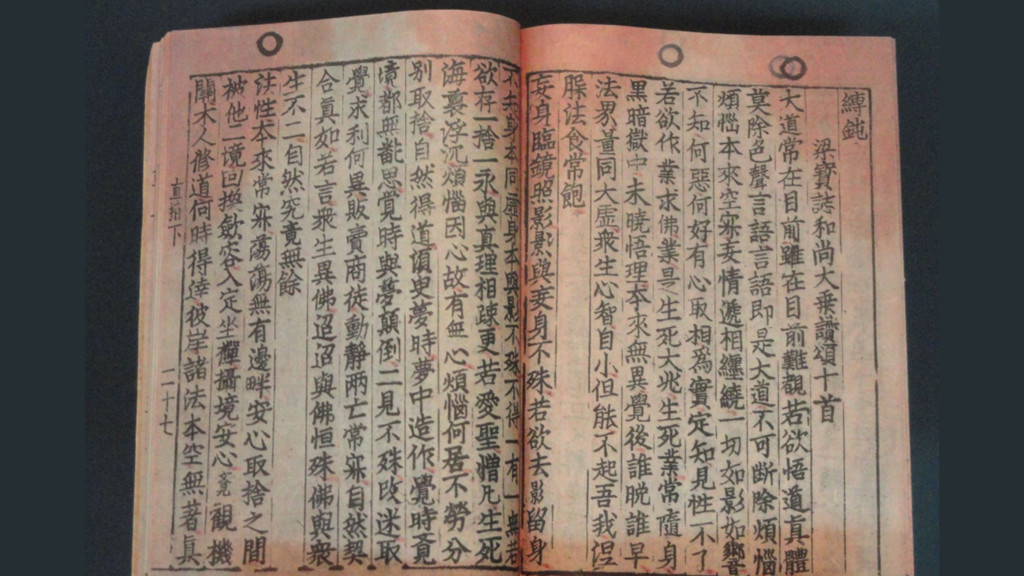 縛鈍
梁寶誌和尚大乘讚頌十首
大道常在目前雖在目前難覩若欲悟道眞體
莫除色聲言語言語即是大道不可斷除煩惱
煩惱本來空寂妄情遞相纏繞一切如影如響
不知何惡何好有心取相爲實定知見性不了
若欲作業求佛業是生死大兆生死業常隨身
黑暗獄中未曉悟理本來無異覺後誰晩誰早
法界量同大虛衆生心智自小但能不起吾我涅
槃法食常飽
妄身臨鏡照影影與妄身不殊若欲去影留身
不身本同虛身本與影不殊不得一有一無若
欲存一捨一永與眞理相疎更若愛聖憎凡生死
海裏浮沉煩惱因心故有無心煩惱何居不勞分
別取捨自然得道湏臾夢時夢中造作覺時覓
境都無飜思覺時與夢顚倒二見不殊改迷取
覺求利何異販賣商徒動靜兩亡常寂自然契
合眞如若言衆生異佛迢迢與佛恒殊佛與衆
生不二自然究竟無餘
法性本來常寂蕩蕩無有邊畔安心取捨之間
被他二境回換斂容入定坐禪攝境安心覺觀機
關木人修道何時得達彼岸諸法本空無著眞
直指下 二十七